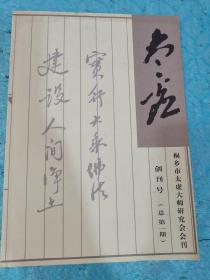 太虚
桐乡市太虚大师研究会会刊
创刊号
（总第一期）
實行大乘佛法
建设人间淨土